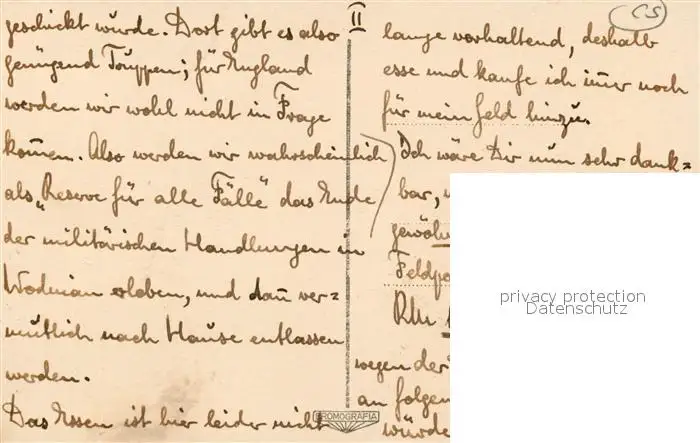 II
CS
geschickt wurde. Dort gibt es also
genügend Truppen; für England
werden wir wohl nicht in Frage
kom̄en. Also werden wir wahrscheinlich
als „Reserve für alle Fälle" das Ende
der militärischen Handlungen in
erleben, und dan̄ ver-
mutlich nach Hause entlassen
werden.
Das Essen ist hier leider nicht
lange vorhaltend, deshalb
esse und kaufe ich im̄er noch
für mein Geld hinzu.
Ich wäre Dir nun sehr dank=
bar,
wegen der
an folgen
würde
BROMOGRAFIA
privacy protection
Datenschutz